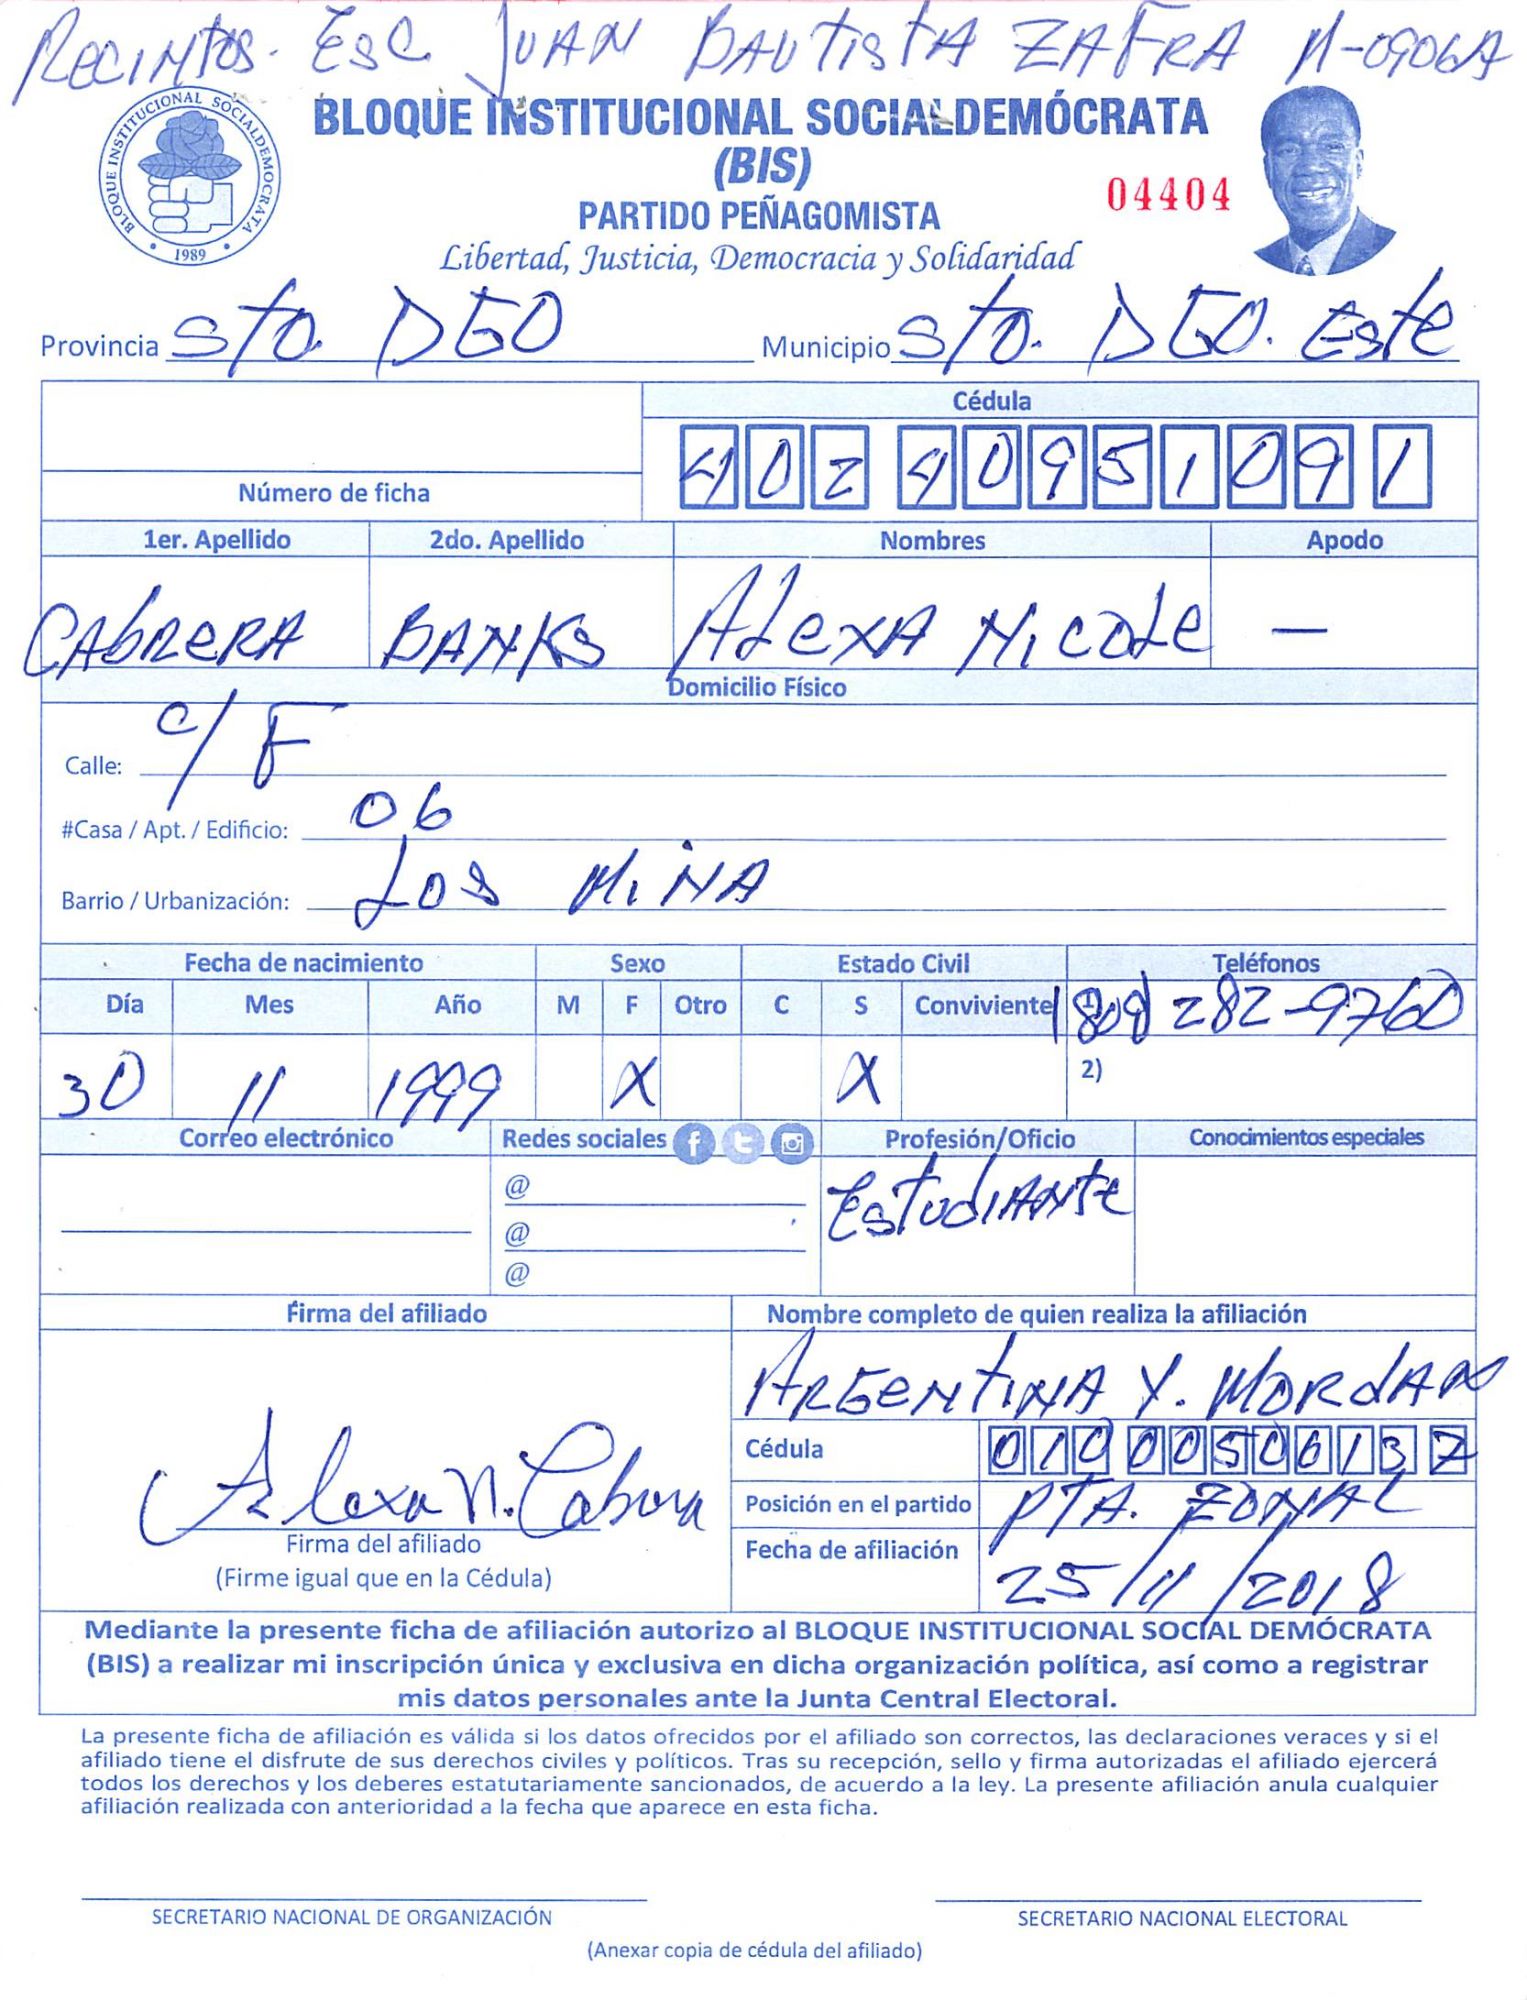 Recintos. Esc Juan Bautista Zafra M-0906A
BLOQUE INSTITUCIONAL SOCIALDEMÓCRATA
(BIS)
PARTIDO PEÑAGOMISTA
04404
Libertad, Justicia, Democracia y Solidaridad
BLOQUE INSTITUCIONAL SOCIALDEMOCRATA
1989
Provincia Sto. DGO Municipio Sto. DGO. Este
Cédula
402 4095109 1
Número de ficha
1er. Apellido 2do. Apellido Nombres Apodo
Cabrera Banks Alexa Nicole —
Domicilio Físico
Calle: c/ F
#Casa / Apt. / Edificio: 06
Barrio / Urbanización: Los Mina
Fecha de nacimiento Sexo Estado Civil Teléfonos
Día Mes Año M F Otro C S Conviviente 1) 809 282-9760
30 11 1999 X X 2)
Correo electrónico Redes sociales Profesión/Oficio Conocimientos especiales
@ Estudiante
@
@
Firma del afiliado Nombre completo de quien realiza la afiliación
Argentina Y. Mordan
Cédula 010 0050613 7
Alexa N. Cabrera
Posición en el partido PTA. Zonal
Firma del afiliado
Fecha de afiliación 25/11/2018
(Firme igual que en la Cédula)
Mediante la presente ficha de afiliación autorizo al BLOQUE INSTITUCIONAL SOCIAL DEMÓCRATA
(BIS) a realizar mi inscripción única y exclusiva en dicha organización política, así como a registrar
mis datos personales ante la Junta Central Electoral.
La presente ficha de afiliación es válida si los datos ofrecidos por el afiliado son correctos, las declaraciones veraces y si el
afiliado tiene el disfrute de sus derechos civiles y políticos. Tras su recepción, sello y firma autorizadas el afiliado ejercerá
todos los derechos y los deberes estatutariamente sancionados, de acuerdo a la ley. La presente afiliación anula cualquier
afiliación realizada con anterioridad a la fecha que aparece en esta ficha.
SECRETARIO NACIONAL DE ORGANIZACIÓN SECRETARIO NACIONAL ELECTORAL
(Anexar copia de cédula del afiliado)